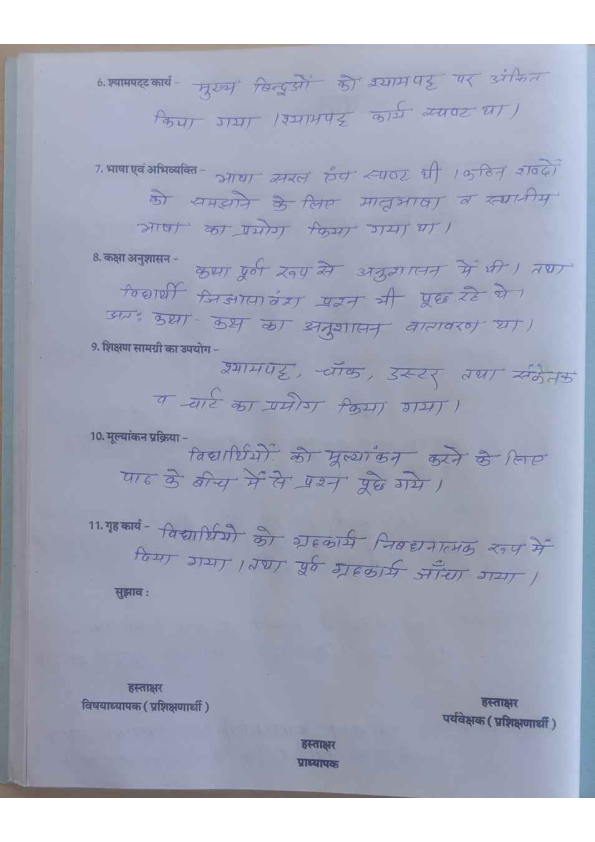 6. श्यामपट्ट कार्य - मुख्य बिन्दुओं को श्यामपट्ट पर अंकित
किया गया । श्यामपट्ट कार्य स्पष्ट था ।
7. भाषा एवं अभिव्यक्ति - भाषा सरल एंव स्पष्ट थी । कठिन शब्दों
को समझाने के लिए मातृभाषा व स्थानीय
भाषा का प्रयोग किया गया था ।
8. कक्षा अनुशासन - कक्षा पूर्ण रूप से अनुशासन में थी । तथा
विद्यार्थी जिज्ञासावंश प्रश्न भी पूछ रहे थे ।
अतः कक्षा - कक्ष का अनुशासन वातावरण था ।
9. शिक्षण सामग्री का उपयोग -
श्यामपट्ट, चॉक, डस्टर तथा संकेतक
व चार्ट का प्रयोग किया गया ।
10. मूल्यांकन प्रक्रिया -
विद्यार्थियों को मूल्यांकन करने के लिए
पाठ के बीच में से प्रश्न पूछे गये ।
11. गृह कार्य - विद्यार्थियो को ग्रहकार्य निबधनात्मक रूप में
दिया गया । तथा पूर्व ग्रहकार्य जाँचा गया ।
सुझाव :
हस्ताक्षर
विषयाध्यापक ( प्रशिक्षणार्थी )
हस्ताक्षर
पर्यवेक्षक ( प्रशिक्षणार्थी )
हस्ताक्षर
प्राध्यापक